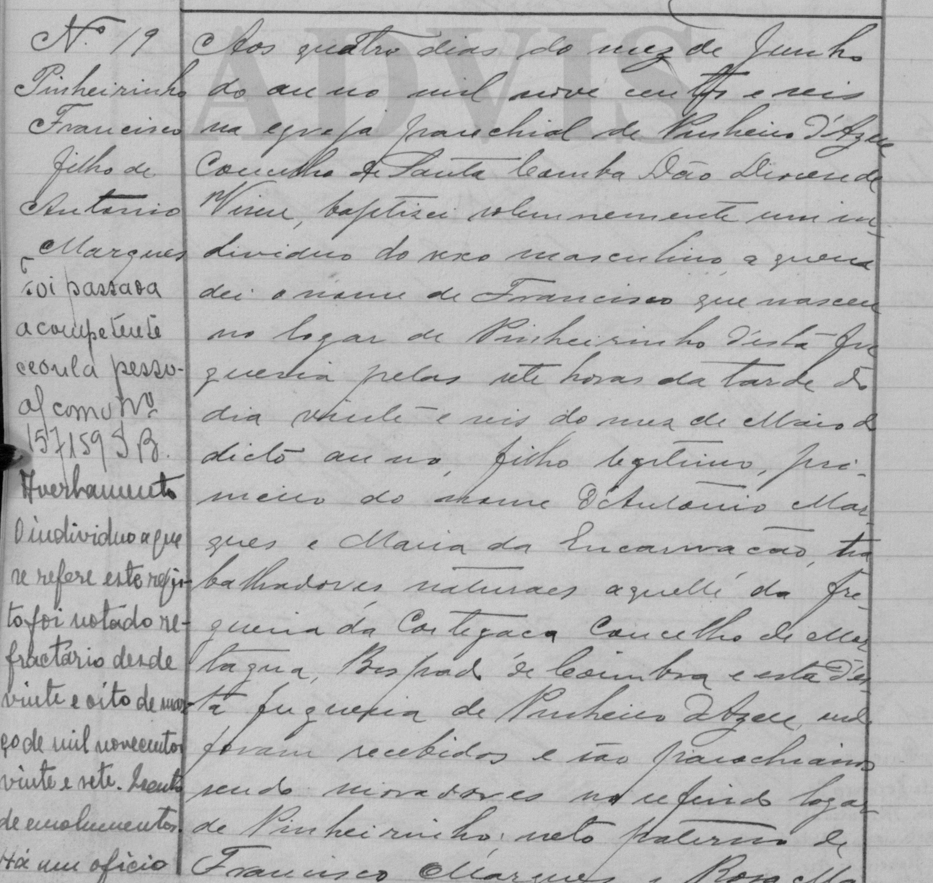 N.º 19
Pinheirinho
Francisco
filho de
Antonio
Marques
Foi passada
a competente
cedula pesso-
al com o Nº
157159 S B.
Averbamento
O individuo a que
se refere este regis-
to foi notado re-
fractário desde
vinte e oito de mar-
ço de mil novecentos
vinte e sete. Isento
de emolumentos.
Há um oficio
ADVIS
Aos quatro dias do mez de Junho
do anno mil nove centos e seis
na egreja parochial de Pinheiro d'Azere
Concelho de Santa Comba Dão Diocese de
Viseu, baptisei solemnemente um in-
dividuo do sexo masculino a quem
dei o nome de Francisco que nasceu
no logar de Pinheirinho d'esta fre
guesia pelas sete horas da tarde do
dia vinte e seis do mez de Maio do
dicto anno, filho legitimo, pri-
meiro do nome d'Antonio Mar-
ques e Maria da Encarnacão, tra
balhadores naturaes aquelle da fre-
guesia da Cortegaca Concelho de Mor
tagua, Bispado de Coimbra e esta d'es-
ta freguesia de Pinheiro d'Azere, onde
foram recebidos e são parochianos
sendo moradores no referido logar
de Pinheirinho; neto paterno de
Francisco Marques e Rosa Ma